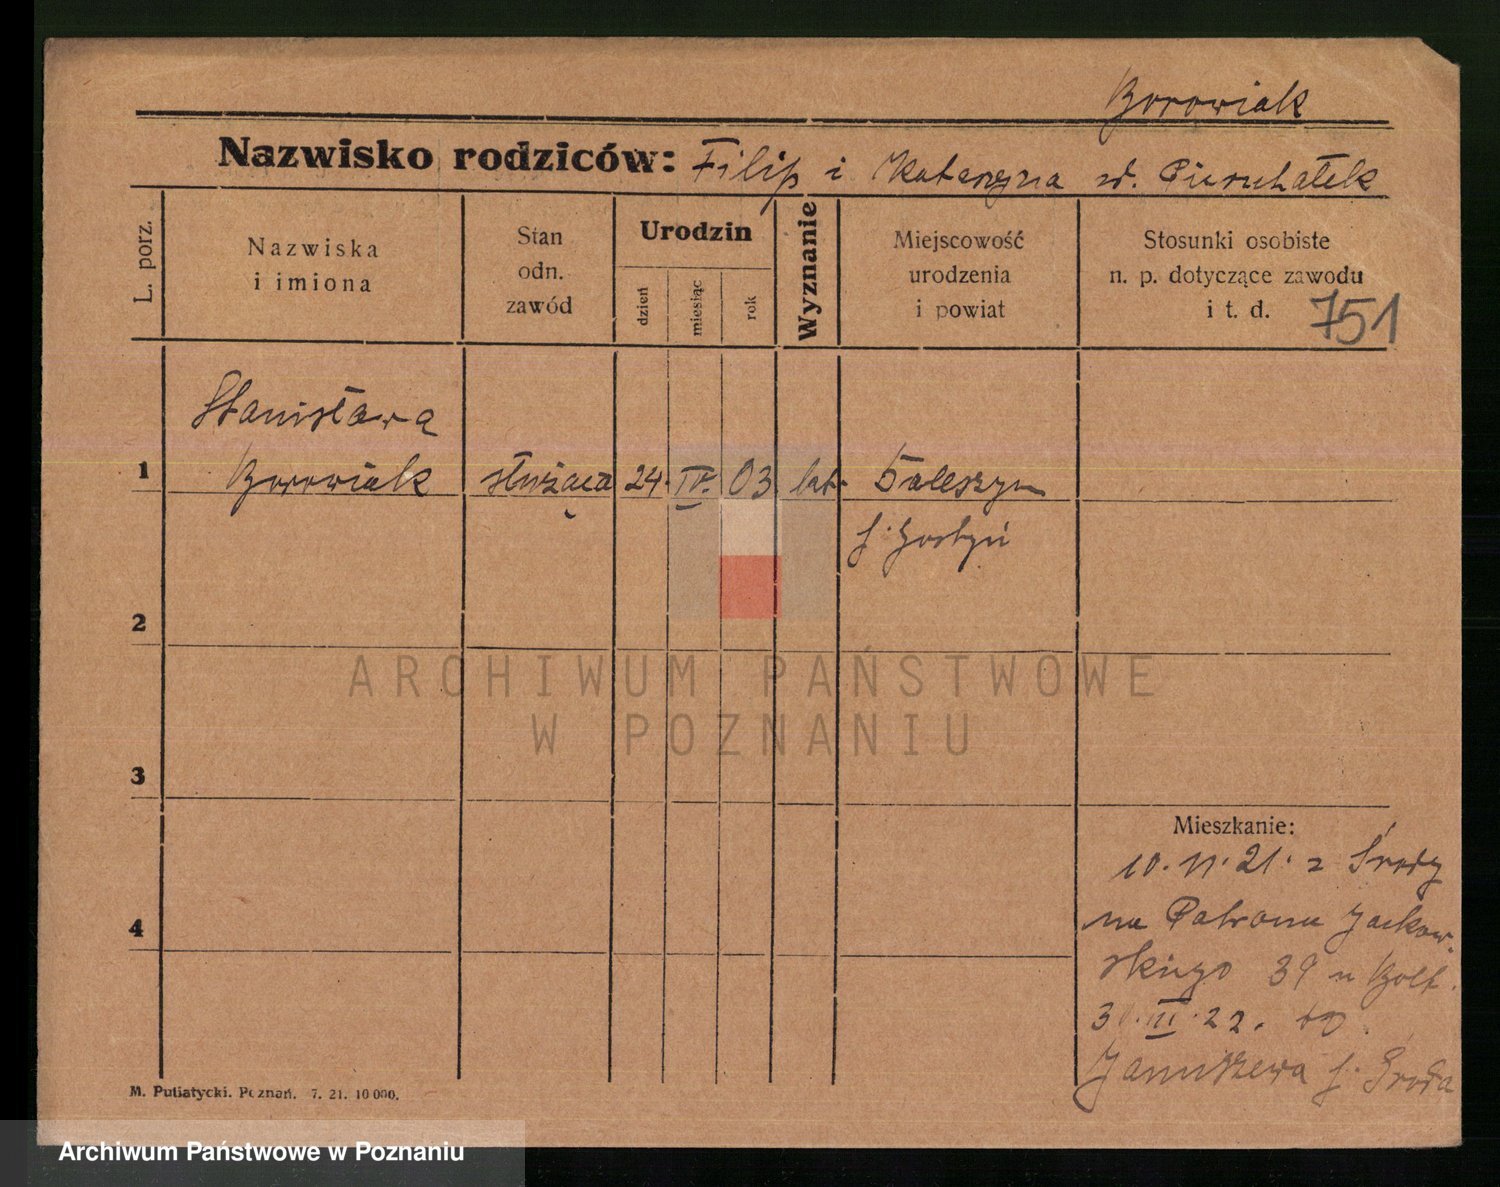 Borowiak
Nazwisko rodziców: Filip i Katarzyna
L. porz.
Nazwiska
i imiona
Stan
odn.
zawód
Urodzin
dzień
miesiąc
rok
Wyznanie
Miejscowość
urodzenia
i powiat
Stosunki osobiste
n. p. dotyczące zawodu
i t. d.
751
Stanisława
1 Borowiak służąca 24. IV. 03 kat.
2
3
4
Mieszkanie:
10. 11. 21. z Środy
na Patrona Jackow-
skiego 39 u
III. 22. do
Januszewa p. Środa
M. Putiatycki. Poznań. 7. 21. 10 000.
ARCHIWUM PAŃSTWOWE
W POZNANIU
Archiwum Państwowe w Poznaniu